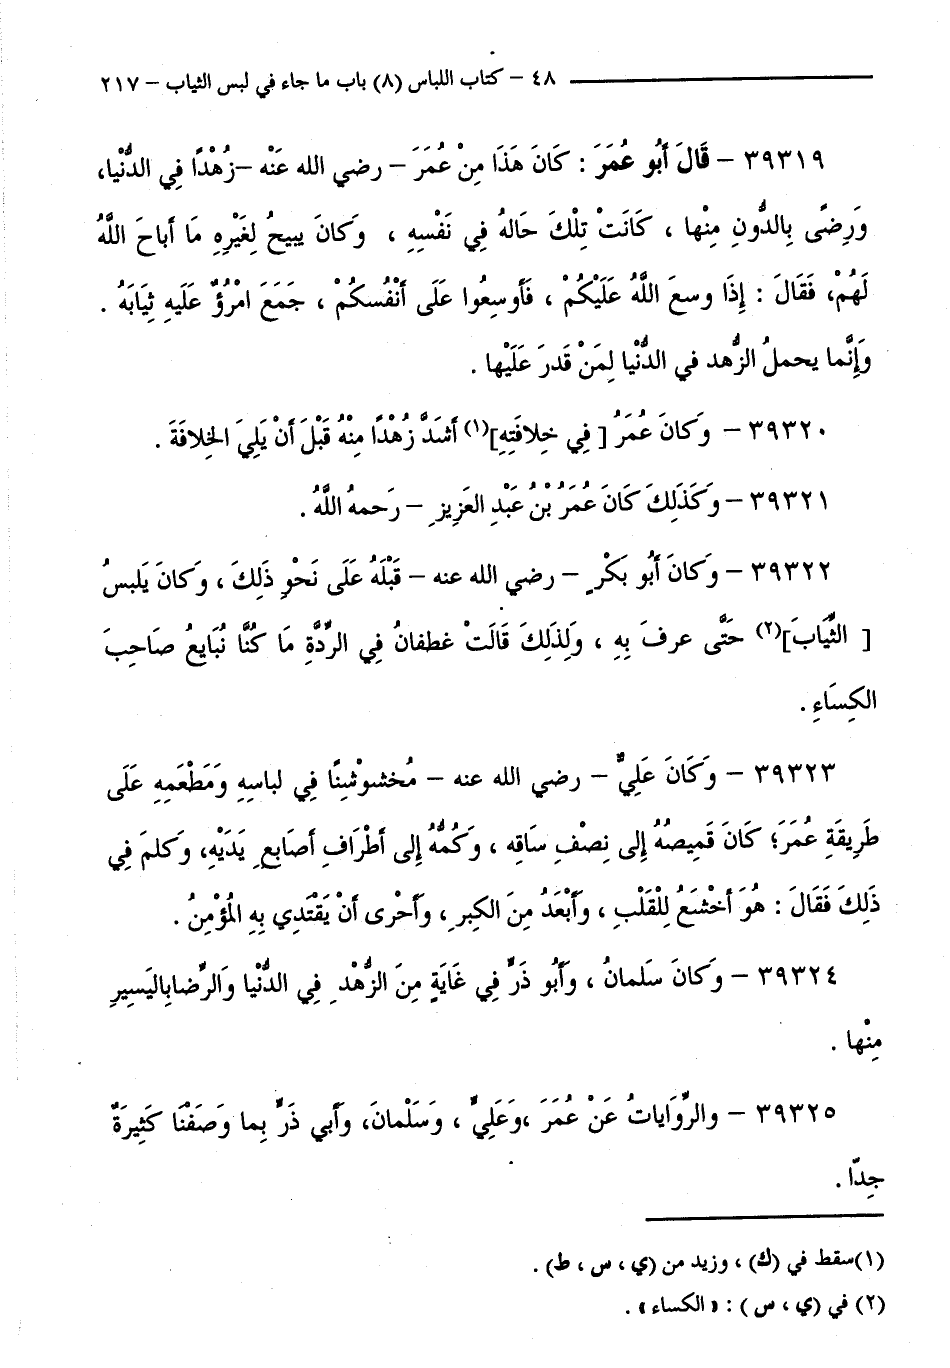 ٤٨ – كتاب اللباس (٨) باب ما جاء في لبس الثياب – ٢١٧
٣٩٣١٩ – قَالَ أَبُو عُمَرَ : كَانَ هَذَا مِنْ عُمَرَ – رضي الله عَنْه –زُهْدًا فِي الدُّنْيا،
وَرِضًى بِالدُّونِ مِنْها ، كَانَتْ تِلْكَ حَالهُ فِي نَفْسِهِ ، وَكانَ يبيحُ لِغَيْرِهِ مَا أَباحَ اللَّهُ
لَهُمْ، فَقَالَ : إِذَا وسعَ اللَّهُ عَلَيْكُمْ ، فَأَوسِعُوا عَلَى أَنْفُسكُمْ ، جَمَعَ امْرُؤٌ عَلَيهِ ثِيَابَهُ .
وَإِنَّما يحملُ الزُّهد في الدُّنْيا لِمَنْ قَدرَ عَلَيْها .
٣٩٣٢٠ – وَكانَ عُمَرُ [ فِي خِلافَتِهِ](١) أَشَدَّ زُهْدًا مِنْهُ قَبْلَ أَنْ يَلِيَ الخِلافَةَ .
٣٩٣٢١ – وَكَذَلِكَ كَانَ عُمَرُ بْنُ عَبْدِ العَزِيزِ – رَحمهُ اللَّهُ .
٣٩٣٢٢ – وَكانَ أَبُو بَكْرٍ – رضي الله عنه – قَبْلَهُ عَلَى نَحْوِ ذَلِكَ ، وَكانَ يَلبسُ
[ الثِّيَابَ](٢) حَتَّى عرفَ بِهِ ، وَلِذَلِكَ قَالَتْ غطفانُ فِي الرِّدَّةِ مَا كُنَّا نُبَايعُ صَاحِبَ
الكِسَاءِ .
٣٩٣٢٣ – وَكَانَ عَلِيٌّ – رضي الله عنه – مُخشوْشنًا فِي لباسِهِ وَمَطْعَمِهِ عَلَى
طَرِيقَةِ عُمَرَ؛ كَانَ قَمِيصُهُ إِلى نِصْفِ سَاقِه ، وَكُمُّهُ إِلى أَطْرَافِ أَصَابعِ يَدَيْهِ، وَكلمَ فِي
ذَلِكَ فَقَالَ : هُوَ أَخْشَعُ لِلْقَلْبِ ، وَأَبْعَدُ مِنَ الكبرِ ، وَأَحْرى أَنْ يَقْتَدِي بِهِ المُؤْمِنُ .
٣٩٣٢٤ – وَكانَ سَلمانُ ، وَأَبُو ذَرٍّ فِي غَايَةٍ مِنَ الزُّهْدِ فِي الدُّنْيا وَالرِّضَابِاليَسِيرِ
مِنْها .
٣٩٣٢٥ – والرِّوَاياتُ عَنْ عُمَرَ ،وَعَلِيٍّ ، وَسَلْمانَ، وَأَبي ذَرٍّ بِما وَصَفْنَا كَثِيرَةٌ
جِدّا .
(١)سقط في (ك) ، وزيد من (ي ، س ، ط) .
(٢) في (ي ، س ) : « الكساء » .